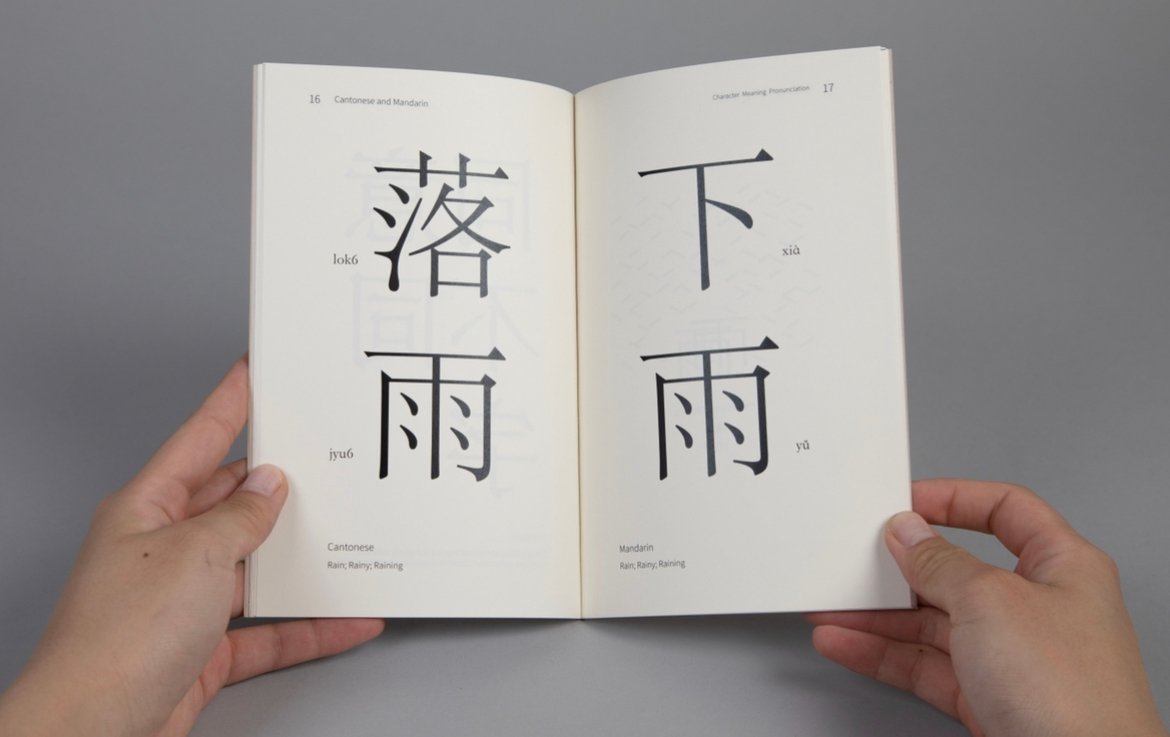 16 Cantonese and Mandarin
落
lok6
雨
jyu6
Cantonese
Rain; Rainy; Raining
Character Meaning Pronunciation 17
下
xià
雨
yǔ
Mandarin
Rain; Rainy; Raining